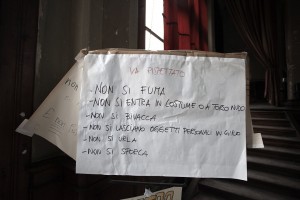 VA RISPETTATO
- NON SI FUMA
- NON SI ENTRA IN COSTUME O A TORSO NUDO
- NON SI BIVACCA
- NON SI LASCIANO OGGETTI PERSONALI IN GIRO
- NON SI URLA
- NON SI SPORCA
non